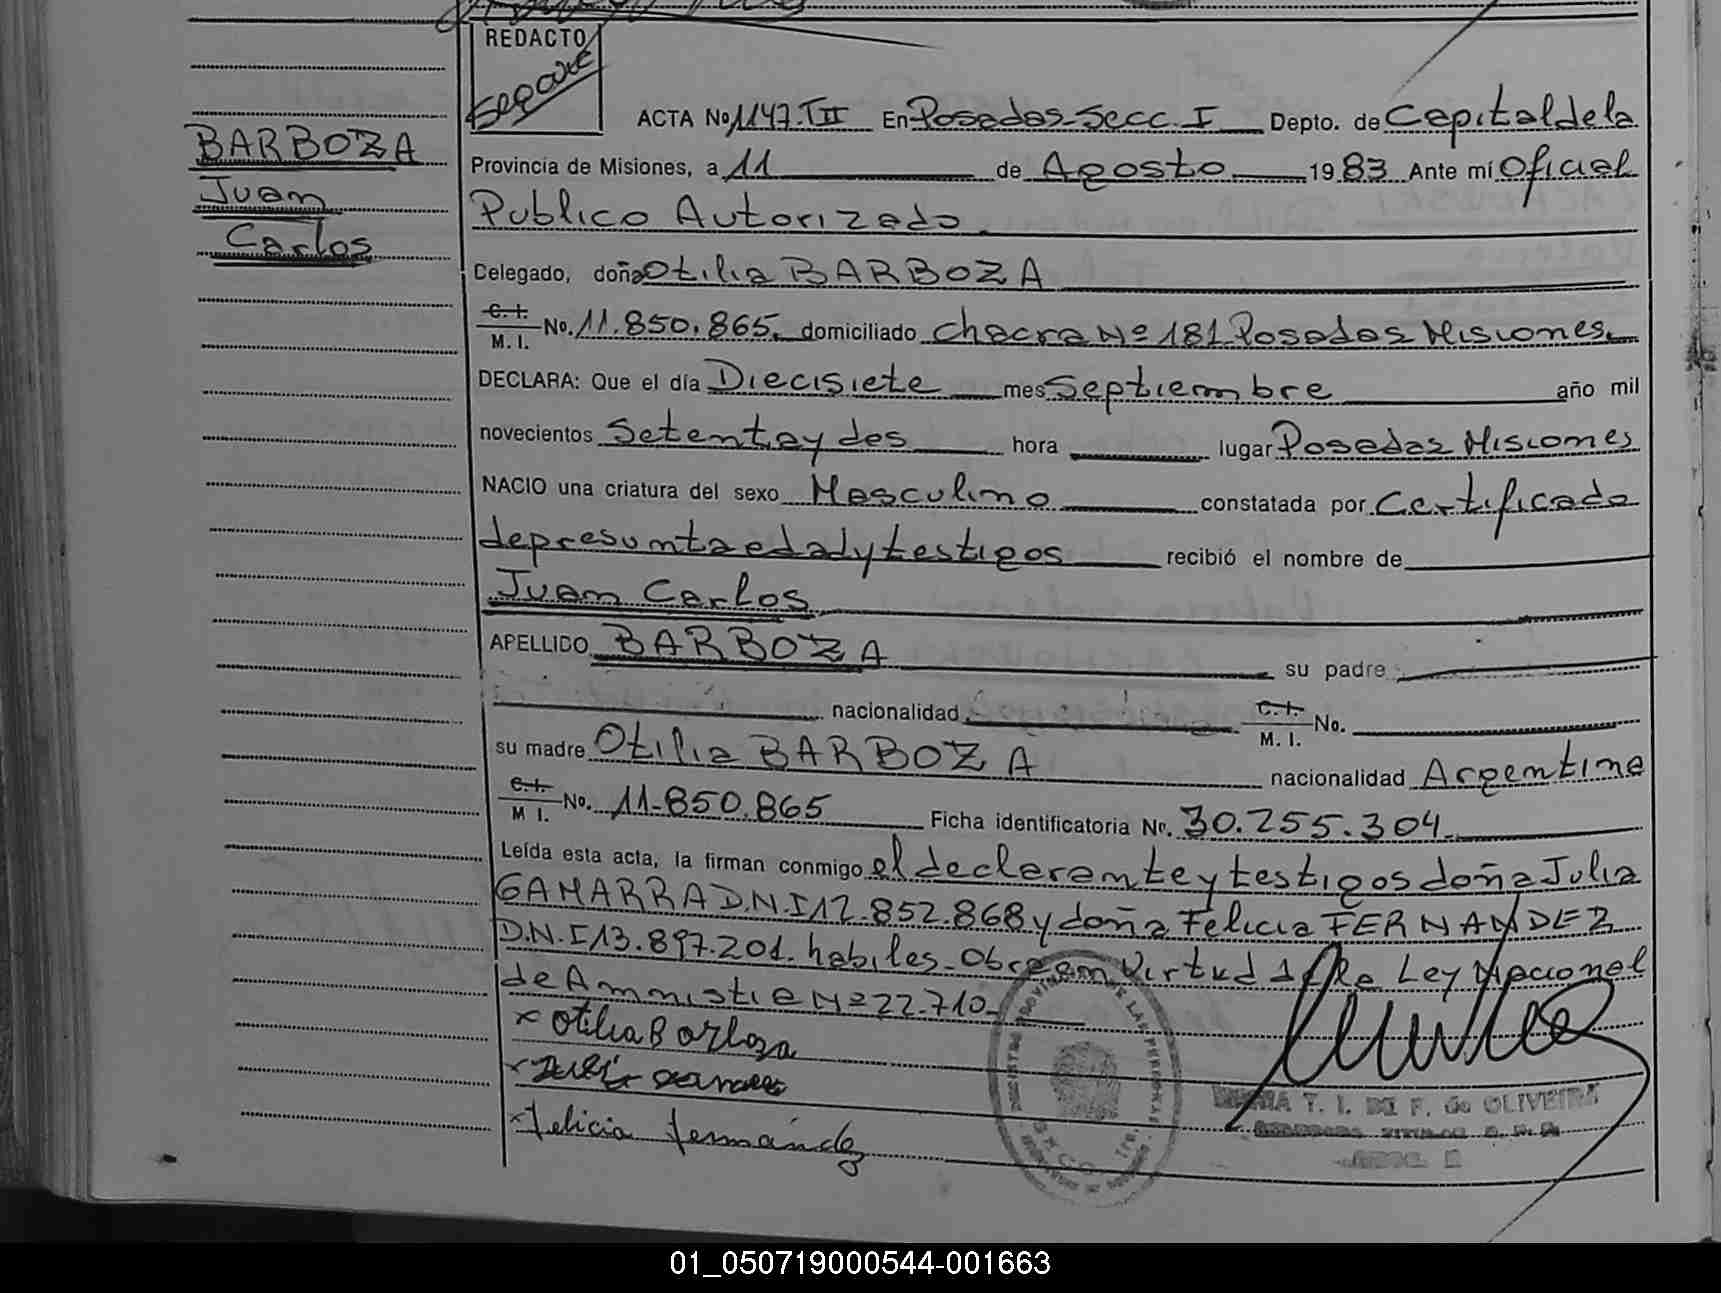 REDACTO
BARBOZA
Juan
Carlos
ACTA Nº 1147.TII En Posadas Secc. I Depto. de Capital de la
Provincia de Misiones, a 11 de Agosto 1983 Ante mí Oficial
Publico Autorizado
Celegado, doña Otilia BARBOZA
C.I. M. I. No. 11.850.865. domiciliado Chacra Nº 181 Posadas Misiones.
DECLARA: Que el día Diecisiete mes Septiembre año mil
novecientos Setenta y dos hora lugar Posadas Misiones
NACIO una criatura del sexo Masculino constatada por Certificado
de presunta edad y testigos recibió el nombre de
Juan Carlos
APELLIDO BARBOZA su padre
nacionalidad C.I. M. I. No.
su madre Otilia BARBOZA nacionalidad Argentina
C.I. M I. No. 11.850.865 Ficha identificatoria No. 30.255.304
Leída esta acta, la firman conmigo el declarante y testigos doña Julia
GAMARRA D.N.I 12.852.868 y doña Felicia FERNANDEZ
D.N.I 13.897.201. habiles. Obra en Virtud de la Ley Nacional
de Amnistia Nº 22.710.
x Otilia Barboza
x Felicia Fernández
T. I. DE F. de OLIVEIRA
01_050719000544-001663